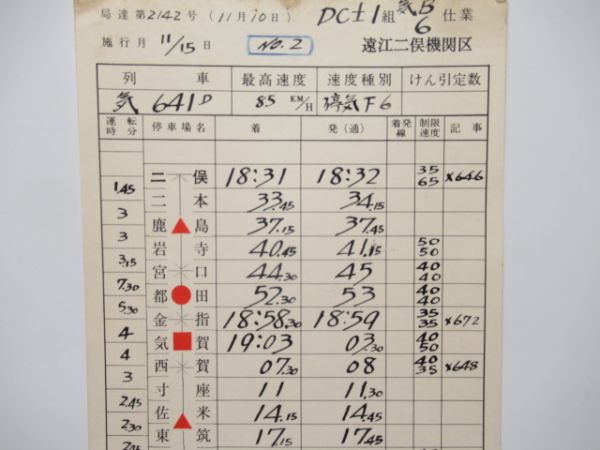 局達第2142号(11月10日) DC±1組 気B6 仕業
施行月 11/15日 NO.2 遠江二俣機関区
列 車 最高速度 速度種別 けん引定数
気 641D 85 KM/H 停気F6
運転時分 停車場名 着 発(通) 着発線 制限速度 記事
二俣 18:31 18:32 35 65 ×646
1.45
二本 33.45 34.15
3
鹿島 37.15 37.45
3
岩寺 40.45 41.15 50 50
3.15
宮口 44.30 45 40 40
7.30
都田 52.30 53 40 40
5.30
金指 18:58.30 18:59 35 35 ×672
4
気賀 19:03 03.30 40 50
4
西賀 07.30 08 40 35 ×648
3
寸座 11 11.30
2.45
佐米 14.15 14.45
2.30
東筑 17.15 17.45
2.45